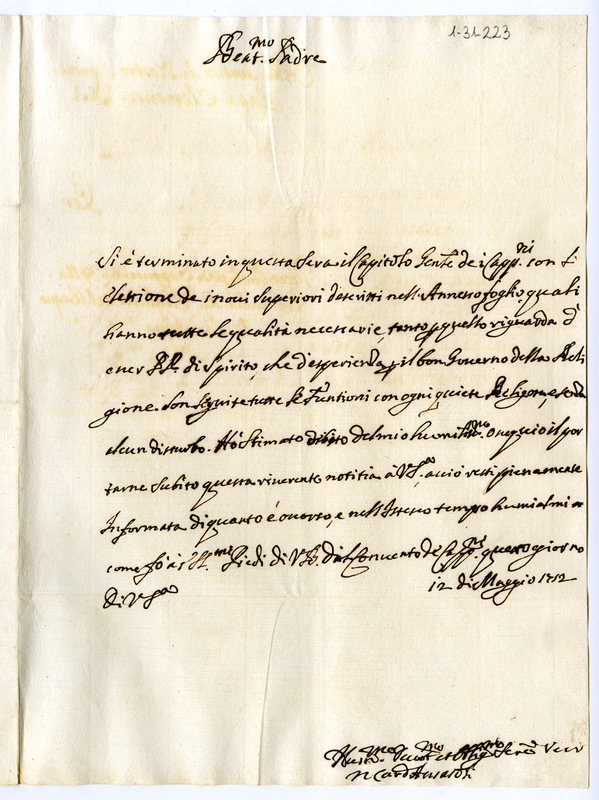 1-31-223
Beat.mo Padre
Si è terminato in questa sera il Capitolo Gen.le de i Capp.ni con l'
Elettione de i noui Superiori descritti nell'Annesso foglio, quali
hanno tutte le qualità necessarie, tanto p quello riguarda d'
di Spirito, che d'esperienza p il buon Gouerno della Reli
gione. Son seguite tutte le Funtioni con ogni quiete Religiosa, e senza
alcun disturbo. Hò stimato debito del mio humiliss.mo il por
tarne subito questa riuerente notitia à V. S.tà, acciò resti pienamente
Informata di quanto è occorso, e nell'istesso tempo humialmi
come fò à i SS.mi Piedi di V. B. Dal Conuento de Capp.ni questo giorno
12 di Maggio 1712
Di V. S.tà
Hum.mo Deuot.mo et Oblig.mo Seru.